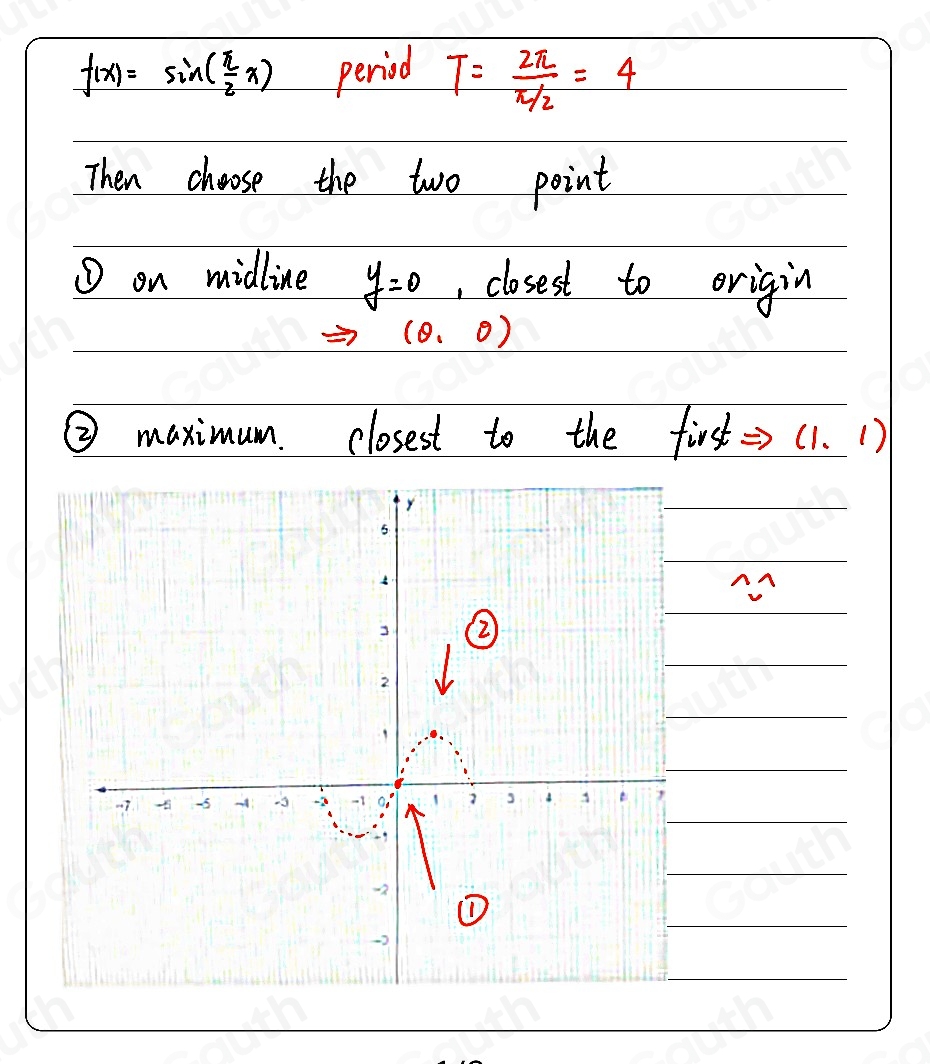 f(x) = sin(π/2 x) period T = 2π / π/2 = 4
Then choose the two point
① on midline y=0, closest to origin
⇒ (0. 0)
② maximum. closest to the first ⇒ (1. 1)
y
5
4
3
②
2
1
-7 -6 -5 -4 -3 -2 -1 0 1 2 3 4 5 6 7
-1
-2
①
-3
Gauth